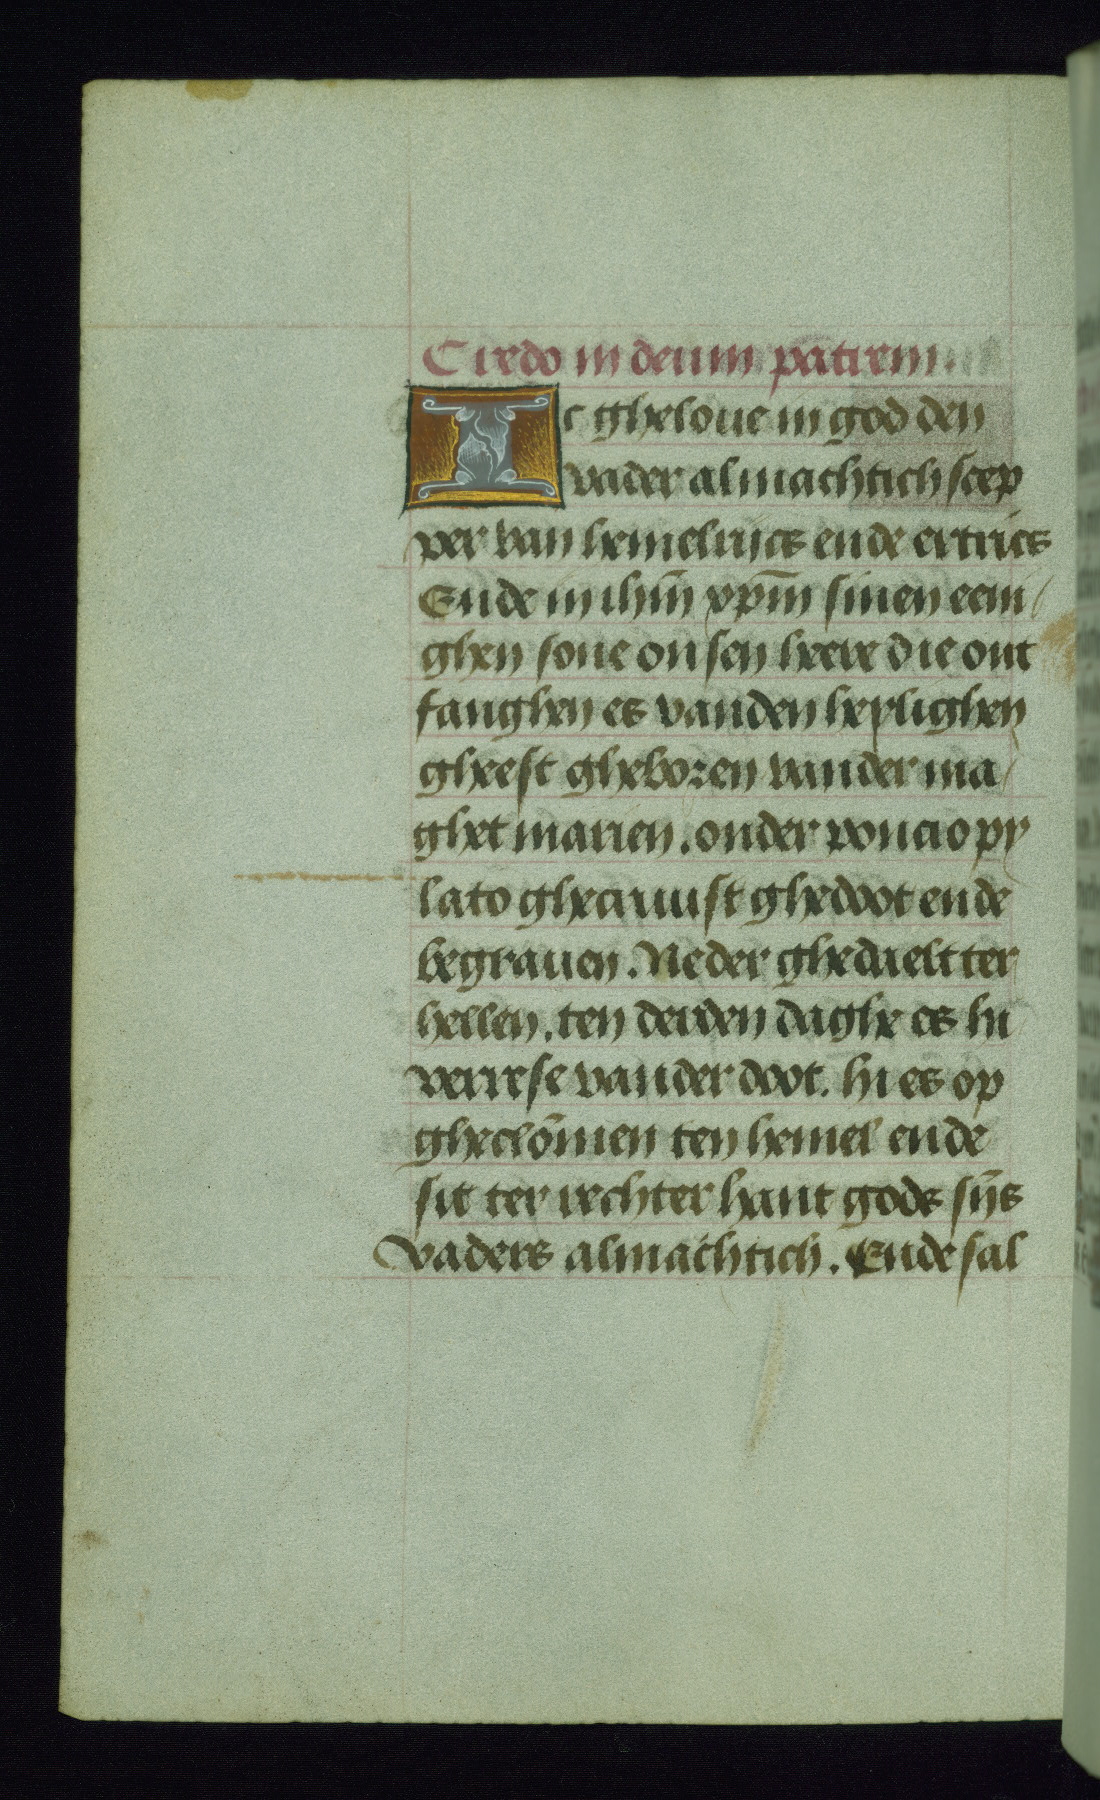 Credo in deum patrem.
Ic gheloue in god den
vader almachtich scep
per van hemelrijcs ende ertrics
Ende in ihm̄ xpm̄ sinen eeni/
ghen sone onsen heere die ont
fanghen es vanden heylighen
gheest gheboren vander ma/
ghet marien. onder poncio py
lato ghecruust ghedoot ende
begrauen. Neder ghedaelt ter
hellen. ten derden daghe es hi
verrese vander doot. hi es op
gheclōmen ten hemel ende
sit ter rechter hant gods sijs
vaders almachtich. Ende sal